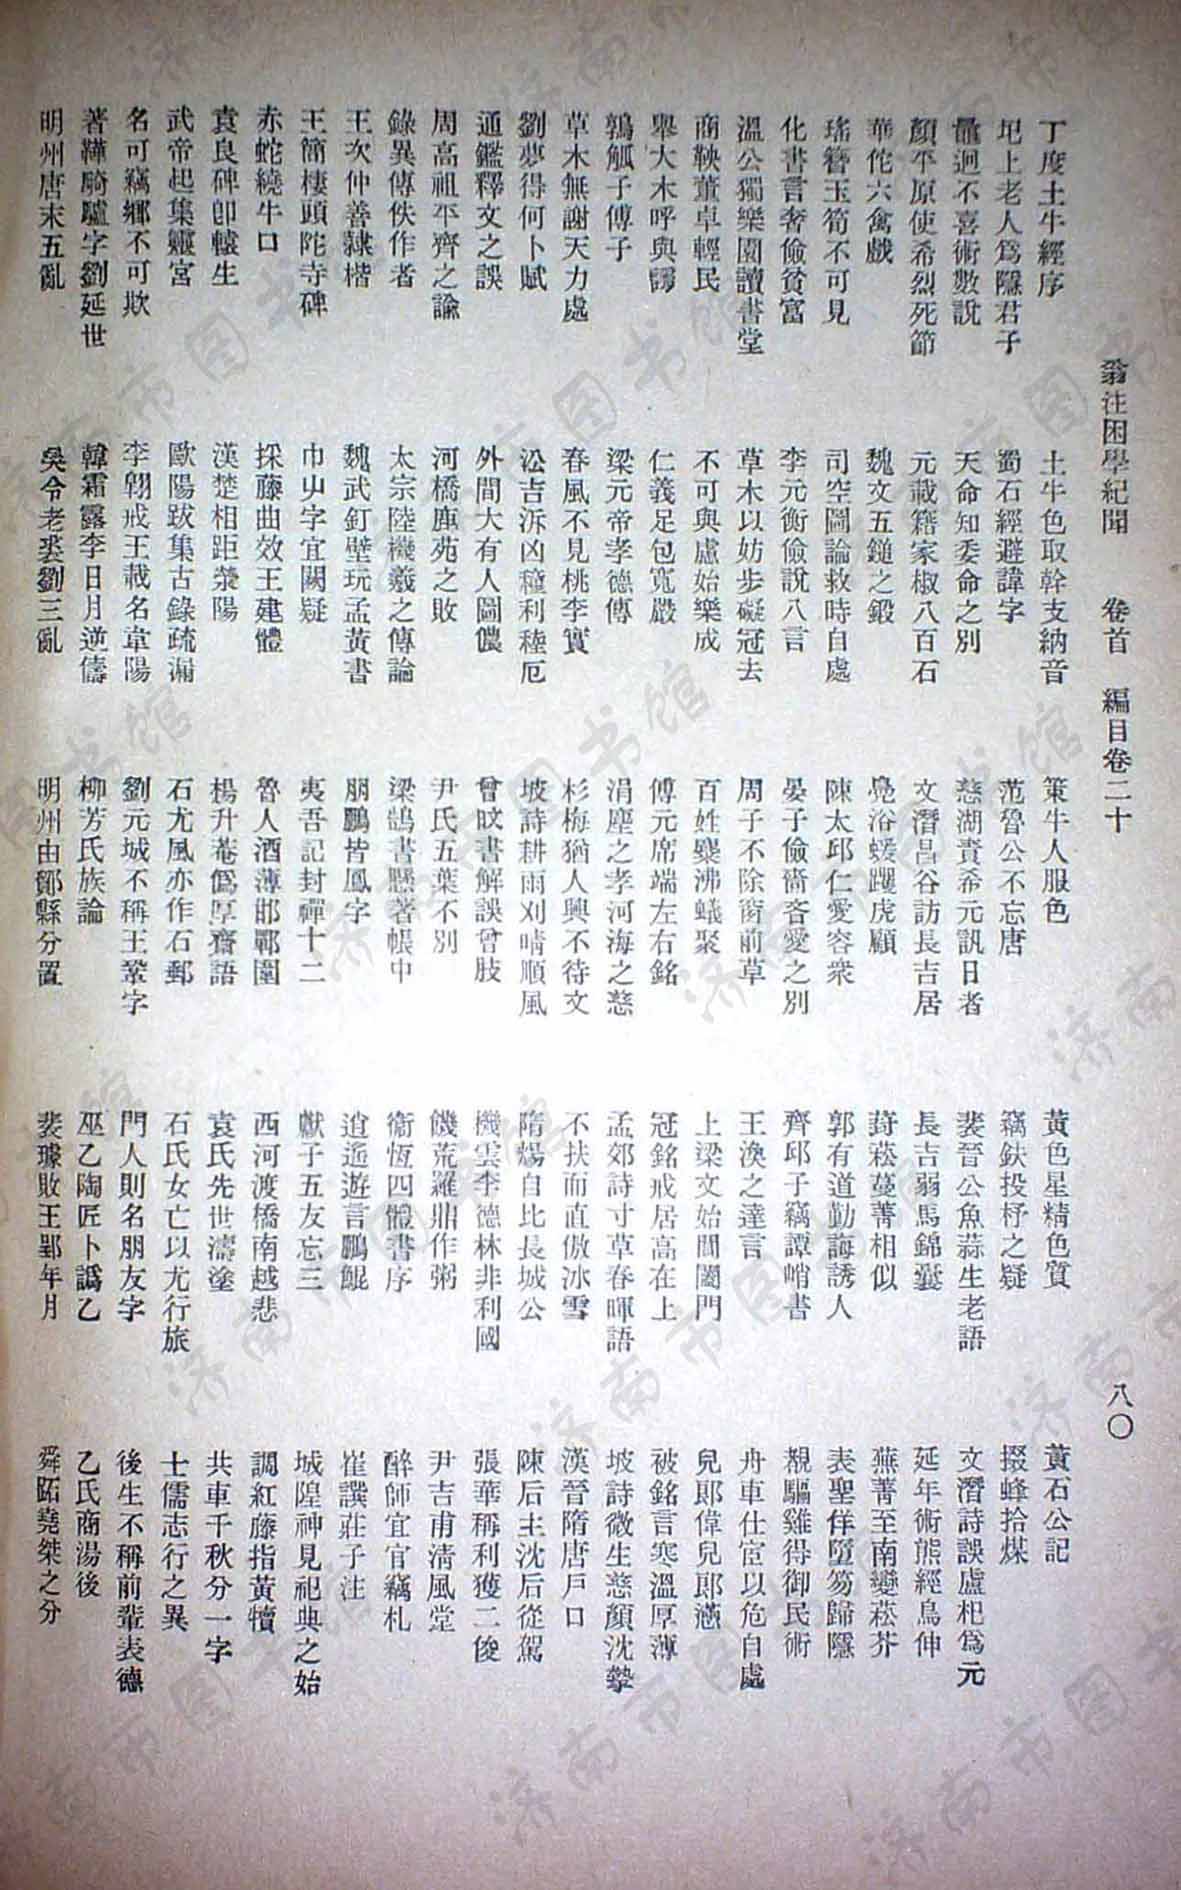 翁注困學紀聞　卷首　編目卷二十　八〇
丁度土牛經序　土牛色取幹支納音　策牛人服色　黃色星精色質　黃石公記
圯上老人爲隱君子　蜀石經避諱字　范魯公不忘唐　竊鈇投杼之疑　掇蜂拾煤
迥不喜術數說　天命知委命之別　慈湖責希元訊日者　裴晉公魚蒜生老語　文潛詩誤盧杞爲元
顏平原使希烈死節　元載籍家椒八百石　文潛昌谷訪長吉居　長吉弱馬錦囊　延年術熊經鳥伸
華佗六禽戲　魏文五鎚之鍛　鳧浴蝯躩虎顧　葑菘蔓菁相似　蕪菁至南變菘芥
瑤簪玉筍不可見　司空圖論救時自處　陳太邱仁愛容衆　郭有道勤誨誘人　表聖佯墮笏歸隱
化書言奢儉貧富　李元衡儉說八言　晏子儉嗇吝愛之別　齊邱子竊譚峭書　覩驅雞得御民術
溫公獨樂園讀書堂　草木以妨步礙冠去　周子不除窗前草　王渙之達言　舟車仕宦以危自處
商鞅董卓輕民　不可與慮始樂成　百姓麋沸蟻聚　上梁文始閶闔門　兒郎偉兒郎懣
舉大木呼與謣　仁義足包寬嚴　傅元席端左右銘　冠銘戒居高在上　被銘言寒溫厚薄
鶉觚子傅子　梁元帝孝德傳　涓塵之孝河海之慈　孟郊詩寸草春暉語　坡詩微生慈顏沈摯
草木無謝天力處　春風不見桃李實　杉梅猶人興不待文　不扶而直傲冰雪　漢晉隋唐戶口
劉夢得何卜賦　訟吉泝凶穜利稑厄　坡詩耕雨刈晴順風　隋煬自比長城公　陳后主沈后從駕
通鑑釋文之誤　外間大有人圖儂　曾旼書解誤曾肢　機雲李德林非利國　張華稱利獲二俊
周高祖平齊之諭　河橋鹿苑之敗　尹氏五葉不別　饑荒羅鼎作粥　尹吉甫清風堂
錄異傳佚作者　太宗陸機羲之傳論　梁鵠書懸著帳中　衞恆四體書序　醉師宜官竊札
王次仲善隸楷　魏武釘壁玩孟黃書　朋鵬皆鳳字　逍遙遊言鵬鯤　崔譔莊子注
王簡棲頭陀寺碑　巾屮字宜闕疑　夷吾記封禪十二　獻子五友忘三　城隍神見祀典之始
赤蛇繞牛口　採藤曲效王建體　魯人酒薄邯鄲圍　西河渡橋南越悲　調紅藤指黃犢
袁良碑卽轅生　漢楚相距滎陽　楊升菴僞厚齋語　袁氏先世濤塗　共車千秋分一字
武帝起集靈宮　歐陽跋集古錄疏漏　石尤風亦作石郵　石氏女亡以尤行旅　士儒志行之異
名可竊鄉不可欺　李翺戒王載名韋陽　劉元城不稱王鞏字　門人則名朋友字　後生不稱前輩表德
著鞾騎驢字劉延世　韓霜露李日月逆儔　柳芳氏族論　巫乙陶匠卜譌乙　乙氏商湯後
明州唐末五亂　吳令老裘劉三亂　明州由鄮縣分置　裴璩敗王郢年月　舜跖堯桀之分